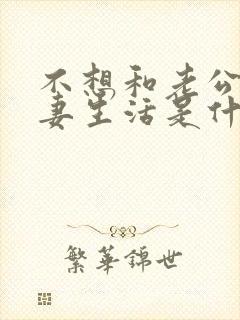 不想和老公
妻生活是什
繁华锦世